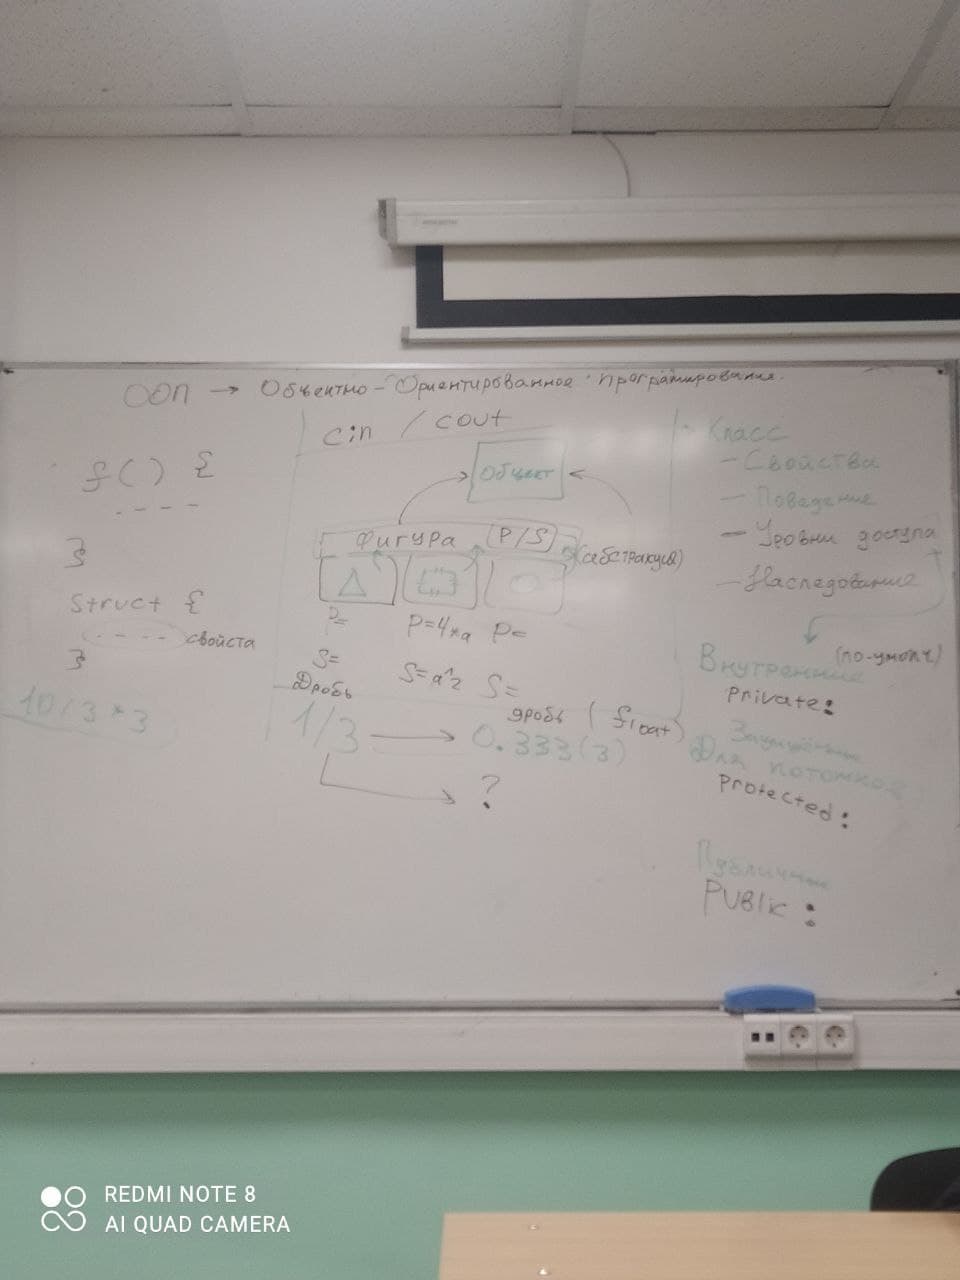 ООП → Объектно-Ориентированное программирование.
f() {
- - - -
}
Struct {
- - - - свойста
}
10/3*3
cin / cout
Объект
Фигура P/S
(абстракция)
P= P=4*a P=
S= S=a^2 S=
Дробь
дробь (float)
1/3 → 0.333(3)
?
Класс
- Свойства
- Поведение
- Уровни доступа
- Наследование
(по-умолч)
Внутренние
Private:
Для потомков
Protected:
Публичные
Public:
REDMI NOTE 8
AI QUAD CAMERA